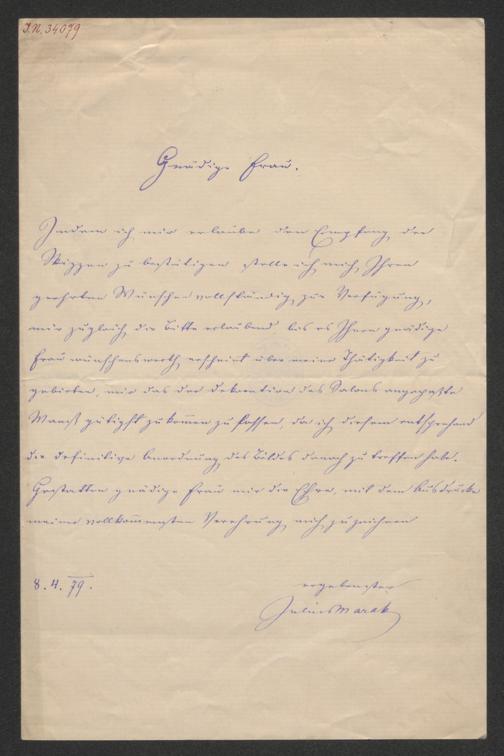 J.N. 34079
Gnädige Frau.
Indem ich mir erlaube den Empfang der
Skizzen zu bestätigen stelle ich mich Ihren
geehrten Wünschen vollständig zur Verfügung,
mir zugleich die Bitte erlaubend bis es Ihnen gnädige
Frau wünschenswerth erscheint über meine Thätigkeit zu
gebieten, mir das der Dekoration des Salons angepaßte
gütigst zukommen zu lassen, da ich diesem entsprechend
die definitive Anordnung des Bildes danach zu treffen habe.
Gestatten gnädige Frau mir die Ehre, mit dem Ausdrucke
meiner vollkommensten Verehrung mich zu zeichnen
8.4.79.
ergebenster
Julius Marak